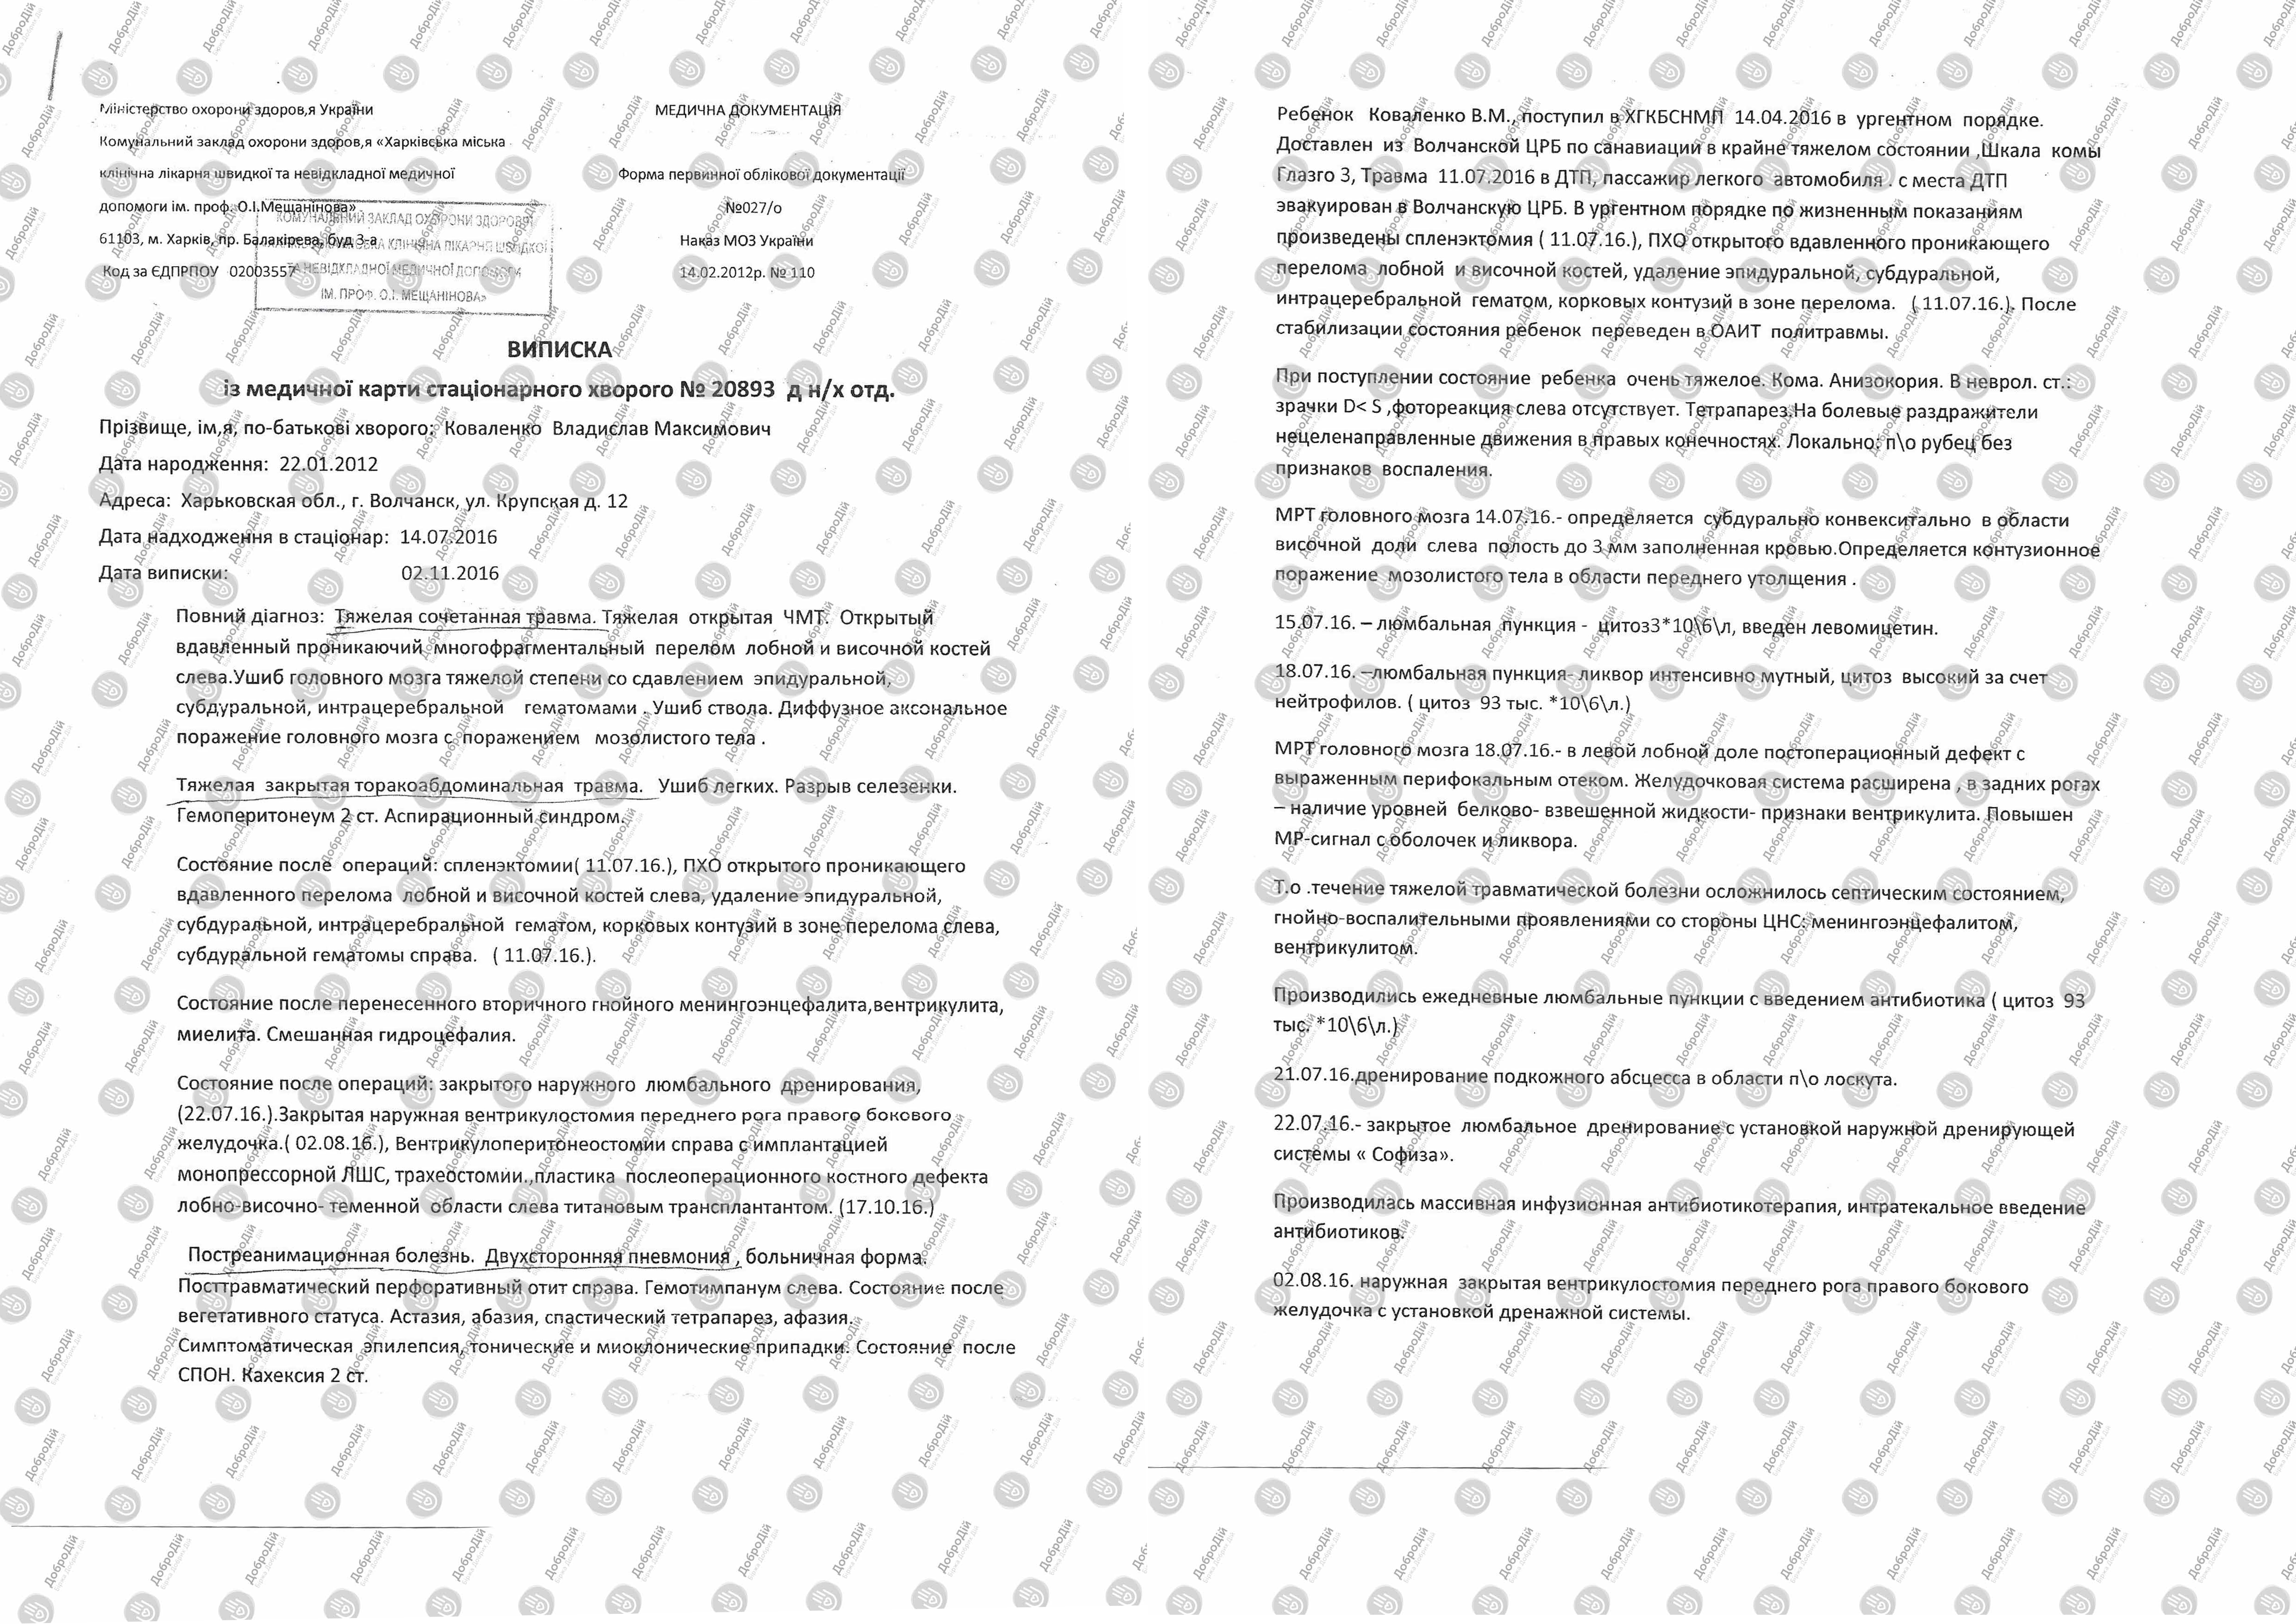 Міністерство охорони здоров,я України
Комунальний заклад охорони здоров,я «Харківська міська
клінічна лікарня швидкої та невідкладної медичної
допомоги ім. проф. О.І.Мещанінова»
61103, м. Харків, пр. Балакірєва, буд 3-а
Код за ЄДПРПОУ 02003557
МЕДИЧНА ДОКУМЕНТАЦІЯ
Форма первинної облікової документації
№027/о
Наказ МОЗ України
14.02.2012р. № 110
КОМУНАЛЬНИЙ ЗАКЛАД ОХОРОНИ ЗДОРОВ'Я
КЛІНІЧНА ЛІКАРНЯ ШВИДКОЇ
ТА НЕВІДКЛАДНОЇ МЕДИЧНОЇ ДОПОМОГИ
ІМ. ПРОФ. О.І. МЕЩАНІНОВА»
ВИПИСКА
із медичної карти стаціонарного хворого № 20893 д н/х отд.
Прізвище, ім,я, по-батькові хворого: Коваленко Владислав Максимович
Дата народження: 22.01.2012
Адреса: Харьковская обл., г. Волчанск, ул. Крупская д. 12
Дата надходження в стаціонар: 14.07.2016
Дата виписки: 02.11.2016
Повний діагноз: Тяжелая сочетанная травма. Тяжелая открытая ЧМТ. Открытый
вдавленный проникаючий многофрагментальный перелом лобной и височной костей
слева.Ушиб головного мозга тяжелой степени со сдавлением эпидуральной,
субдуральной, интрацеребральной гематомами . Ушиб ствола. Диффузное аксональное
поражение головного мозга с поражением мозолистого тела .
Тяжелая закрытая торакоабдоминальная травма. Ушиб легких. Разрыв селезенки.
Гемоперитонеум 2 ст. Аспирационный синдром.
Состояние после операций: спленэктомии( 11.07.16.), ПХО открытого проникающего
вдавленного перелома лобной и височной костей слева, удаление эпидуральной,
субдуральной, интрацеребральной гематом, корковых контузий в зоне перелома слева,
субдуральной гематомы справа. ( 11.07.16.).
Состояние после перенесенного вторичного гнойного менингоэнцефалита,вентрикулита,
миелита. Смешанная гидроцефалия.
Состояние после операций: закрытого наружного люмбального дренирования,
(22.07.16.).Закрытая наружная вентрикулостомия переднего рога правого бокового
желудочка.( 02.08.16.), Вентрикулоперитонеостомии справа с имплантацией
монопрессорной ЛШС, трахеостомии.,пластика послеоперационного костного дефекта
лобно-височно- теменной области слева титановым трансплантантом. (17.10.16.)
Постреанимационная болезнь. Двухсторонняя пневмония , больничная форма.
Посттравматический перфоративный отит справа. Гемотимпанум слева. Состояние после
вегетативного статуса. Астазия, абазия, спастический тетрапарез, афазия.
Симптоматическая эпилепсия, тонические и миоклонические припадки. Состояние после
СПОН. Кахексия 2 ст.
Ребенок Коваленко В.М., поступил в ХГКБСНМП 14.04.2016 в ургентном порядке.
Доставлен из Волчанской ЦРБ по санавиации в крайне тяжелом состоянии ,Шкала комы
Глазго 3, Травма 11.07.2016 в ДТП, пассажир легкого автомобиля . с места ДТП
эвакуирован в Волчанскую ЦРБ. В ургентном порядке по жизненным показаниям
произведены спленэктомия ( 11.07.16.), ПХО открытого вдавленного проникающего
перелома лобной и височной костей, удаление эпидуральной, субдуральной,
интрацеребральной гематом, корковых контузий в зоне перелома. ( 11.07.16.). После
стабилизации состояния ребенок переведен в ОАИТ политравмы.
При поступлении состояние ребенка очень тяжелое. Кома. Анизокория. В неврол. ст.:
зрачки D< S ,фотореакция слева отсутствует. Тетрапарез.На болевые раздражители
нецеленаправленные движения в правых конечностях. Локально: п\о рубец без
признаков воспаления.
МРТ головного мозга 14.07.16.- определяется субдурально конвекситально в области
височной доли слева полость до 3 мм заполненная кровью.Определяется контузионное
поражение мозолистого тела в области переднего утолщения .
15.07.16. – люмбальная пункция - цитоз3*10\6\л, введен левомицетин.
18.07.16. –люмбальная пункция- ликвор интенсивно мутный, цитоз высокий за счет
нейтрофилов. ( цитоз 93 тыс. *10\6\л.)
МРТ головного мозга 18.07.16.- в левой лобной доле постоперационный дефект с
выраженным перифокальным отеком. Желудочковая система расширена , в задних рогах
– наличие уровней белково- взвешенной жидкости- признаки вентрикулита. Повышен
МР-сигнал с оболочек и ликвора.
Т.о .течение тяжелой травматической болезни осложнилось септическим состоянием,
гнойно-воспалительными проявлениями со стороны ЦНС: менингоэнцефалитом,
вентрикулитом.
Производились ежедневные люмбальные пункции с введением антибиотика ( цитоз 93
тыс. *10\6\л.)
21.07.16.дренирование подкожного абсцесса в области п\о лоскута.
22.07.16.- закрытое люмбальное дренирование с установкой наружной дренирующей
системы « Софиза».
Производилась массивная инфузионная антибиотикотерапия, интратекальное введение
антибиотиков.
02.08.16. наружная закрытая вентрикулостомия переднего рога правого бокового
желудочка с установкой дренажной системы.
ДоброДій